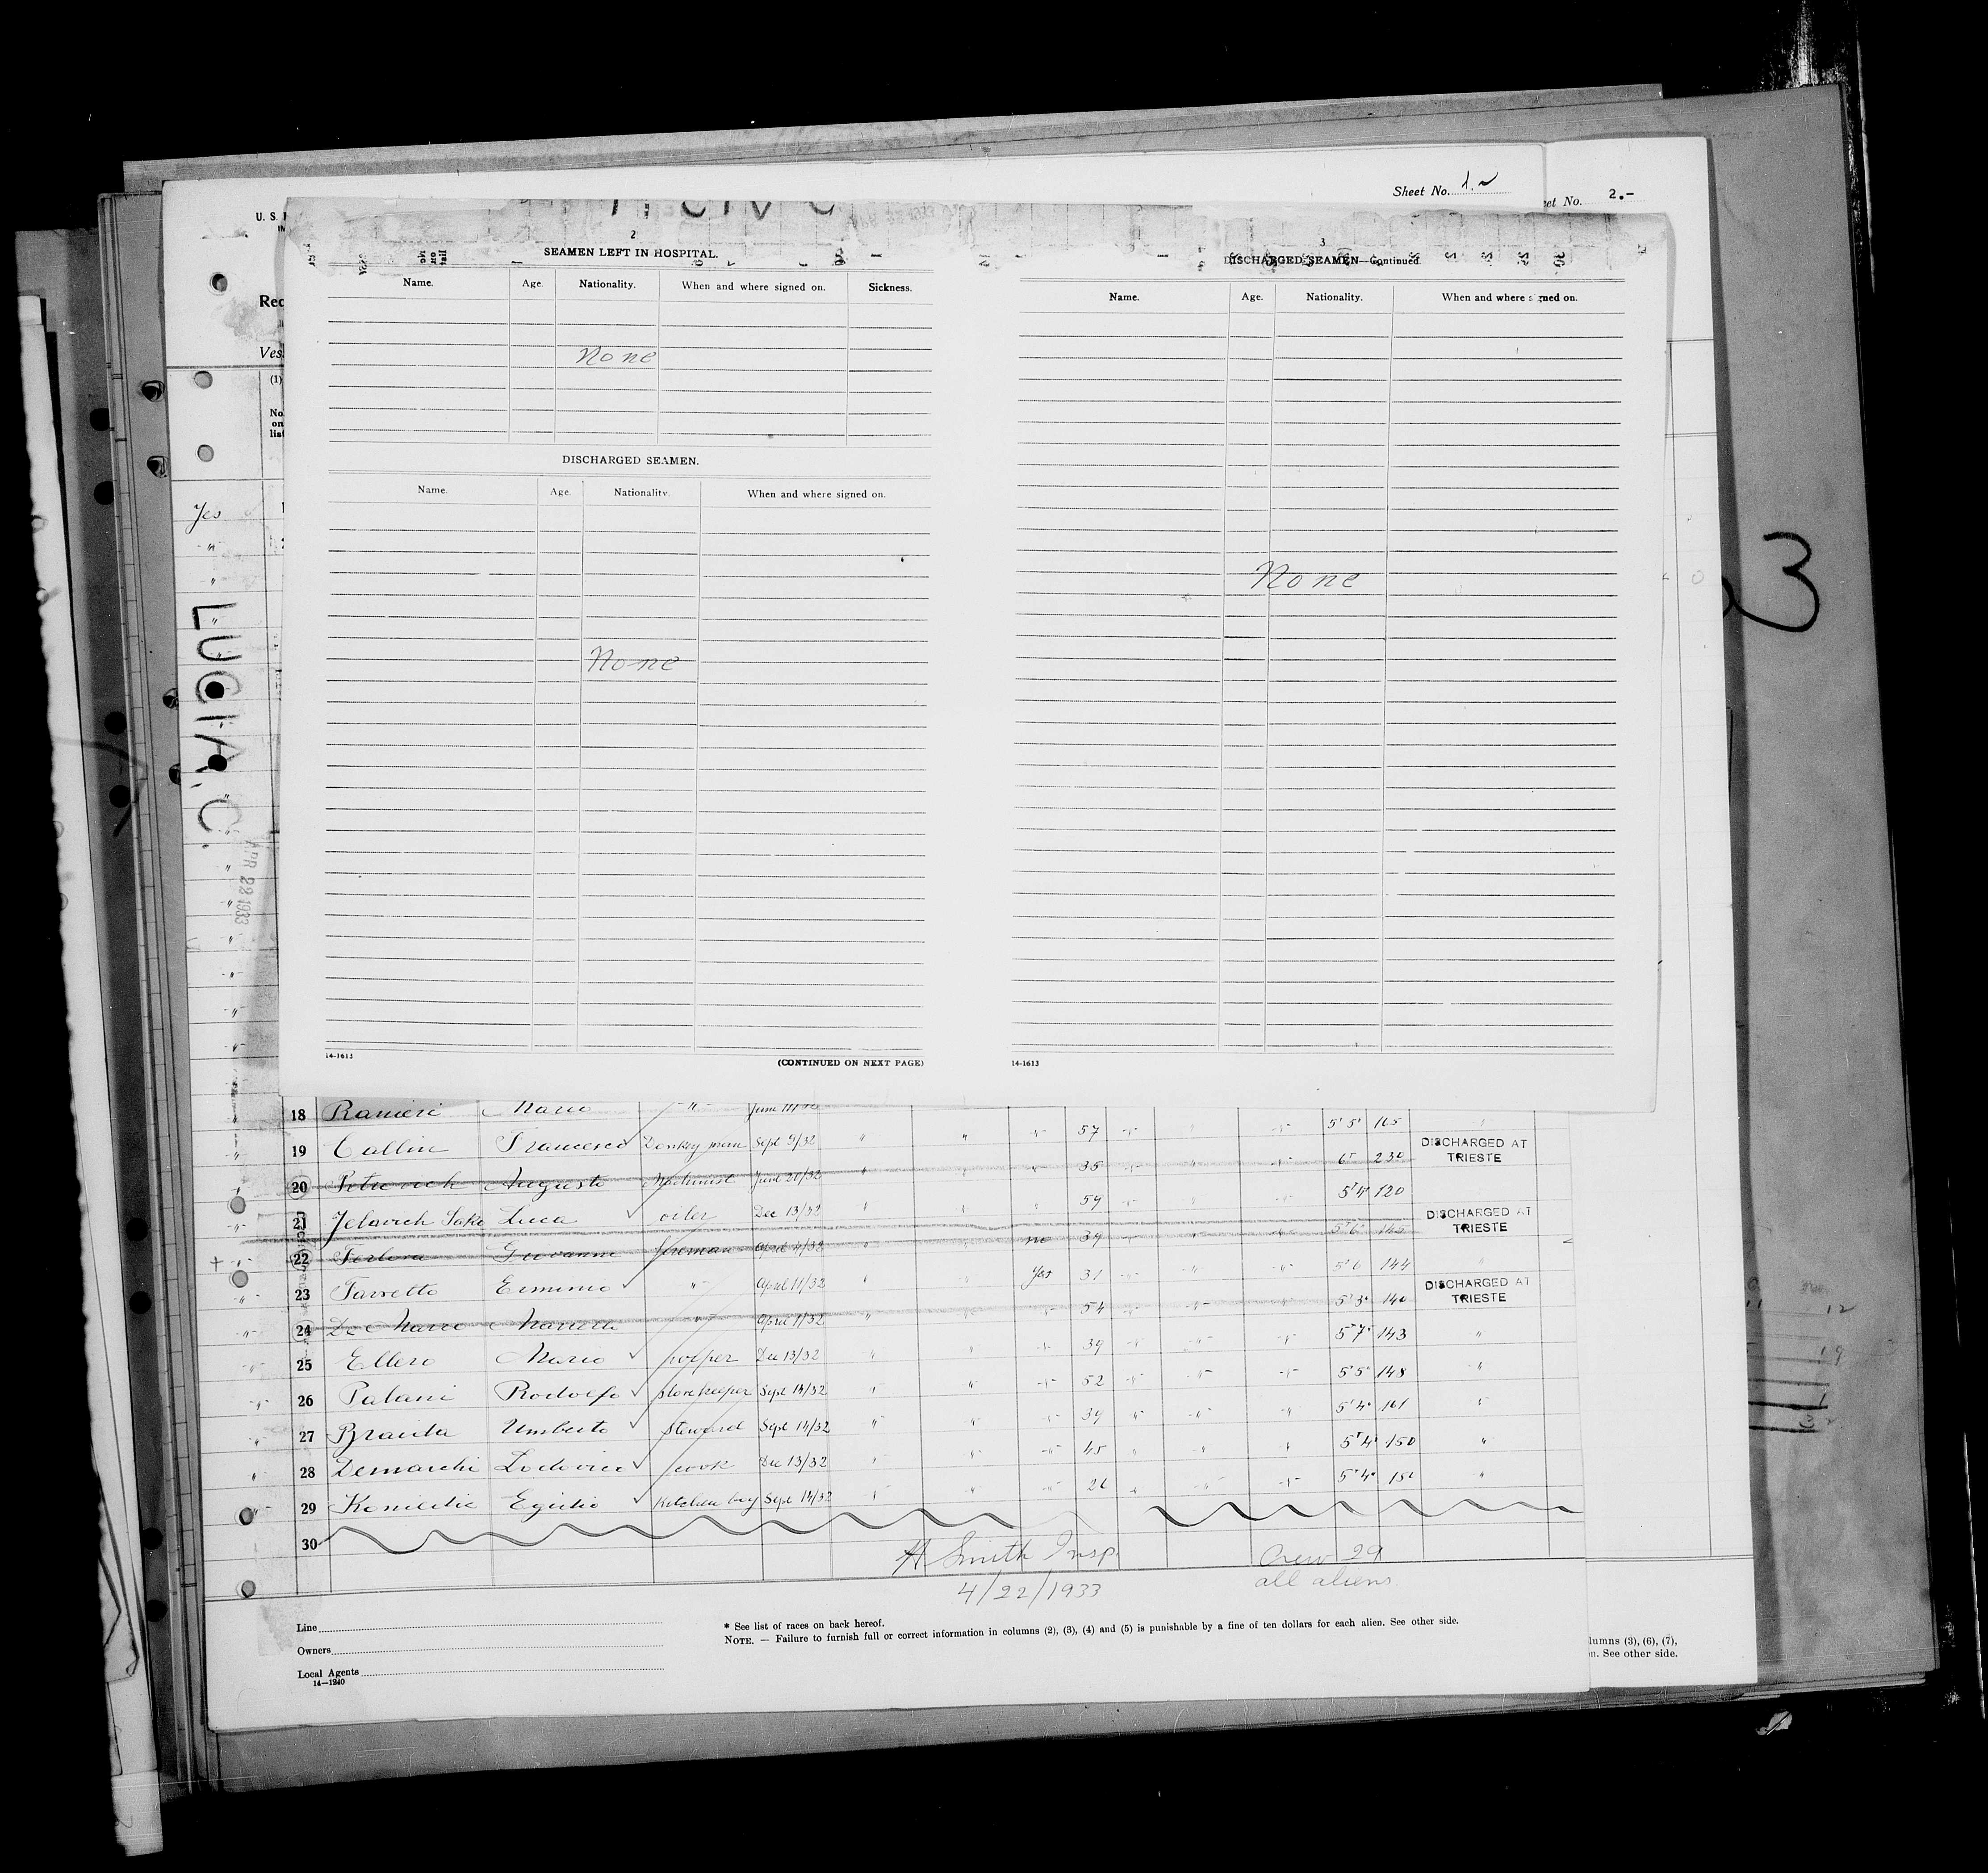 Sheet No. 1.
et No. 2.-
U. S.
Rec
Ves
(1)
No.
on
list
Yes
LUCIA, C.
APR 22 1933
2
SEAMEN LEFT IN HOSPITAL.
Name. Age. Nationality. When and where signed on. Sickness.
None
DISCHARGED SEAMEN.
Name. Age. Nationality. When and where signed on.
None
14-1613 (CONTINUED ON NEXT PAGE)
3
DISCHARGED SEAMEN—Continued.
Name. Age. Nationality. When and where signed on.
None
14-1613
3
18 Ranieri Mario " June
19 Callin Francesco Donkeyman Sept 9/32 " " " 57 " " " 5'5" 165
20 Petrovich Augusto Machinist June 21/32 " " " 35 " " " 6' 230 DISCHARGED AT TRIESTE
21 Jelovich Luca oiler Dec 13/32 " " " 54 " " " 5'4" 120
22 Giovanni fireman April 11/32 " " no 39 " " " 5'6" 145 DISCHARGED AT TRIESTE
23 Erminio " April 11/32 " " Yes 31 " " " 5'6 144 "
24 De Marco " April 11/32 " " " 54 " " " 5'3" 140 DISCHARGED AT TRIESTE
25 Ellero Mario Dec 13/32 " " " 39 " " " 5'7" 143 "
26 Palani Rodolfo storekeeper Sept 14/32 " " " 52 " " " 5'5" 148 "
27 Umberto steward Sept 14/32 " " " 39 " " " 5'4" 161 "
28 Demarchi Lodovico cook Dec 13/32 " " " 45 " " " 5'4" 150 "
29 Egidio kitchen boy Sept 14/32 " " " 26 " " " 5'4" 150 "
30
H Smith Insp.
4/22/1933
Crew 29
all aliens
Line
Owners
Local Agents
14—1240
* See list of races on back hereof.
NOTE. — Failure to furnish full or correct information in columns (2), (3), (4) and (5) is punishable by a fine of ten dollars for each alien. See other side.
lumns (3), (6), (7),
n. See other side.